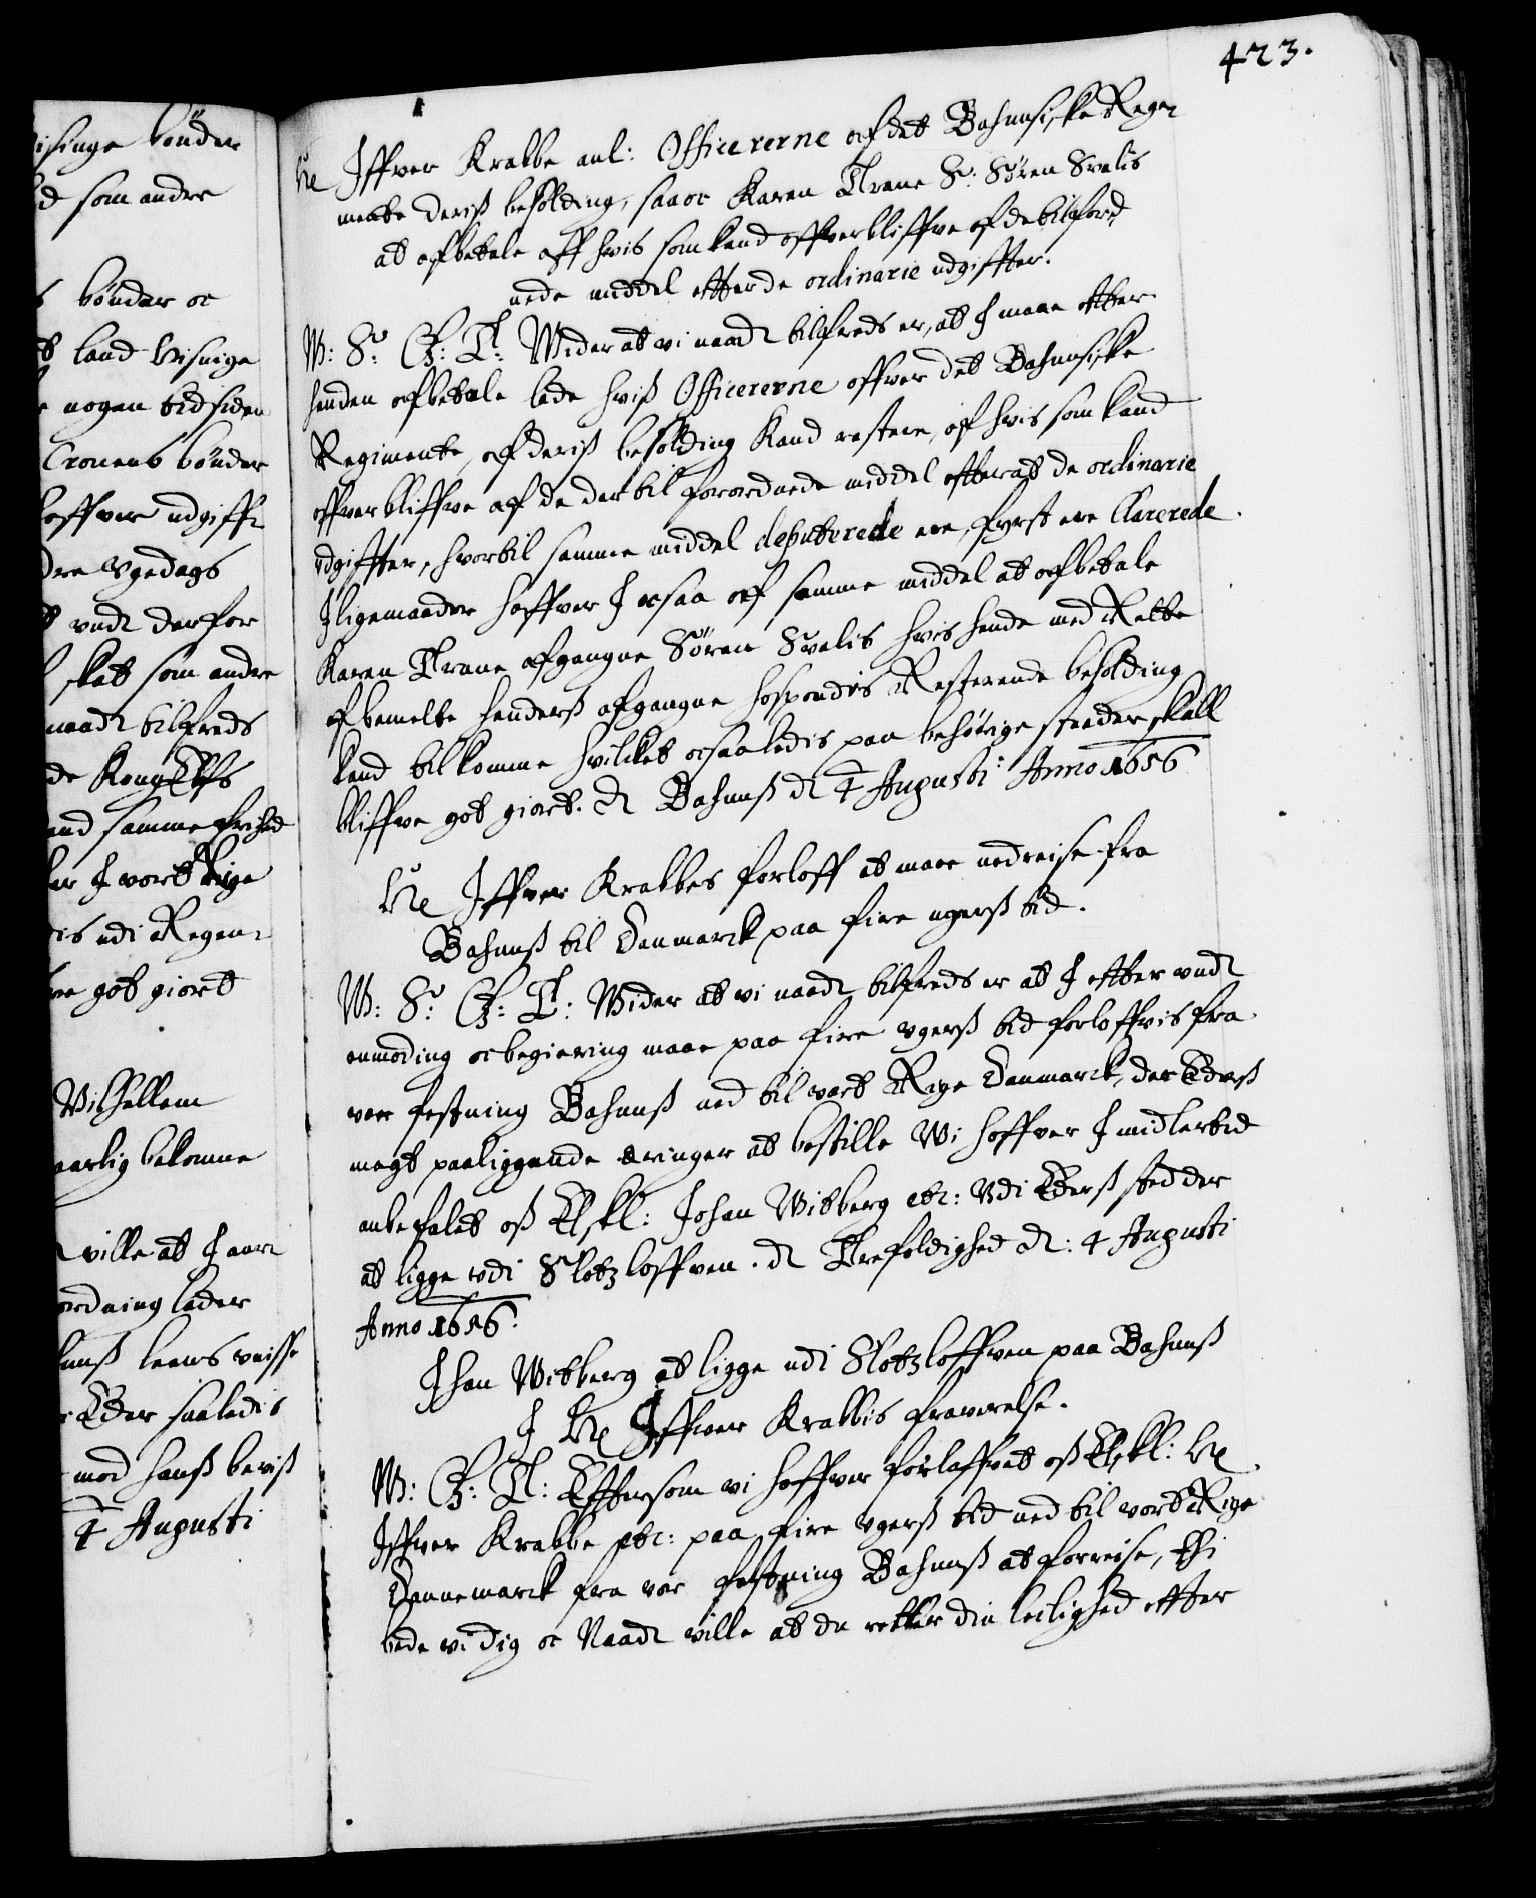 423.
isinge bönder
d som andre
s bönder oc
t land Visnige
r nogen tid siden
Cronens bönder
loffver udgifft
dre Vgedags
t vndt derfor
skat som andre
naadt tilfreds
de Kong
and samme frihed
er J vort Rige
is udi Regen
re got giort
Wilhellem
aarlig bekomme
ville at J aar
ordning lader
huuss leens visse
Eder saaledis
mod hanss beviss
4 Augusti
Hr Jffver Krabbe anl: Officererne af det Bahusiske Regi
mente deriss besolding, saa oc Karen Trane S: Sören Svalis
at afbetale aff hvis som kand offverbliffve af de tilford
nede middel efter de ordinarie udgiffter.
W: S: G: T: Wider at vi naadt tilfreds er, at J maae efter
henden afbetale lade hviss Officererne offver det Bahusiske
Regimente, af deriss besolding kand restere, af hvis som kand
offverbliffve af de dertil forordnede middel efterat de ordinarie
udgiffter, hvortil samme middel deputerede ere, fyrst ere Clarerede.
Jligemaade hoffver J ocsaa af samme middel at afbetale
Karen Trane afgangne Sören Svalis hvis hende med Rette
af bemelte henderss afgangne hosbondis Resterende besolding
kand tilkomme hvilket ocsaaledis paa behörige steeder skall
bliffve got giort. d Bahuss d 4 Augusti Anno 1656
Hr Jffver Krabbes forloff at maae nedreise fra
Bahuss til Danmarck paa fire ugerss tid.
W: S: G: T: Wider at vi naadt tilfreds er at J efter vndt
anmoding oc begiering maae paa fire vgerss tid forloffvis fra
vor festning Bahuss ned til vort Rige Danmarck, der Ederss
magt paaliggende eringer at bestille Wi hoffver J midlertid
anbefalet oss Elskl: Johan Witberg etc: Vdi Ederss sted der
at ligge vdi Slotzloffven. d Trefoldighed d: 4 Augusti
Anno 1656.
Jhan Witberg at ligge udi Slotzloffven paa Bahuss
J Hr Jffver Krabbis fraverelse.
W: G: T: Efftersom vi hoffver forloffvet oss Elskl: Hr
Jffver Krabbe etc: paa fire vgerss tid ned til vort Rige
Dannemarck fra vor festning Bahuss at forreise, Thi
bede vi dig oc Naadt ville at du retter din leilighed efter